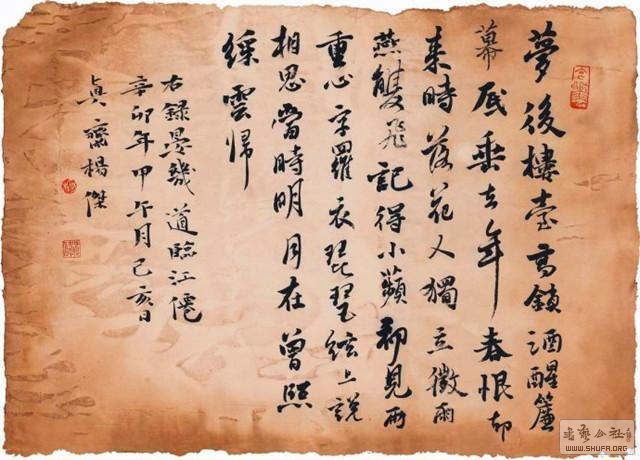 夢後樓臺高鎖酒醒簾
幕低垂去年春恨却
来時落花人獨立微雨
燕雙飛記得小蘋初見兩
重心字羅衣琵琶絃上説
相思當時明月在曾照
綵雲歸
右録晏幾道臨江僊
辛卯年甲午月己亥日
貞齋楊傑
WWW.SHUFA.ORG